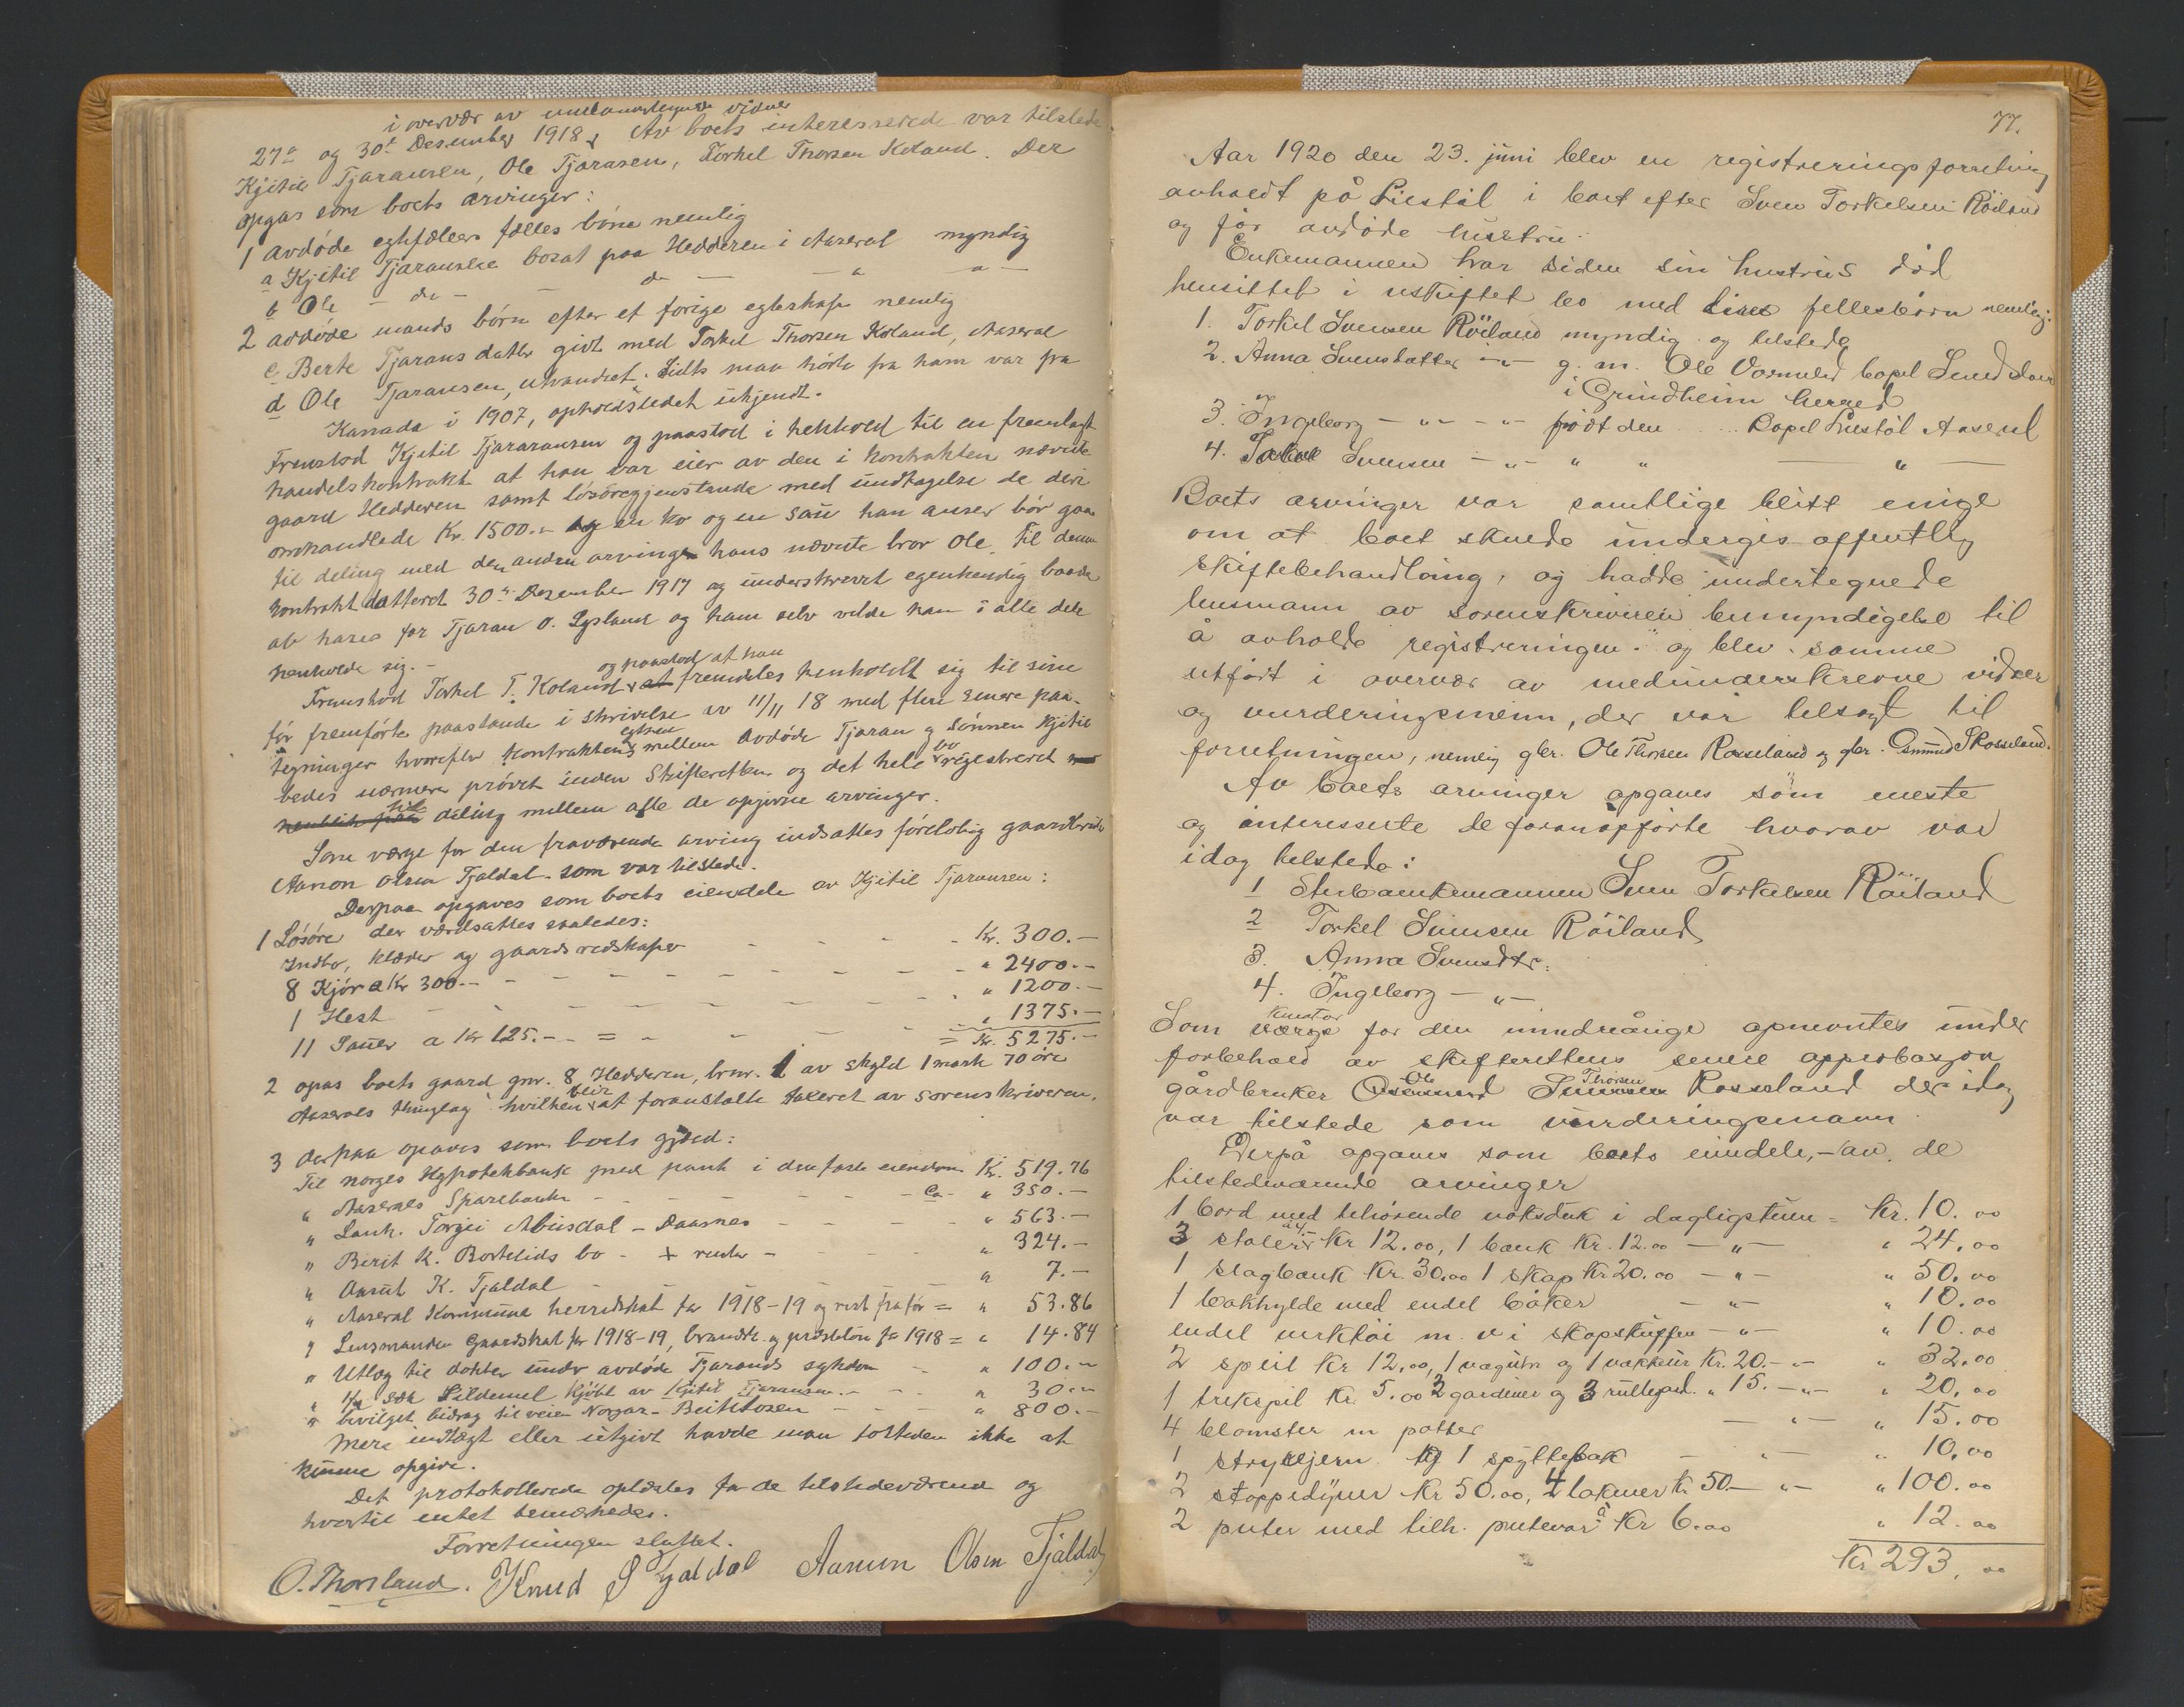 i overvær av undertegnede vidner
27de og 30te Desember 1918. Av boets interesserede var tilstede
Kjitil Tjaransen, Ole Tjaransen, Torkel Thorsen Koland. Der
opgas som boets arvinger:
1 Avdøde egtefællers fælles børn nemlig
a Kjitil Tjaransen bosat paa Hedderen i Aaseral myndig
b Ole - do - - do - - " - " -
2 avdøde mands børn efter et forige egteskap nemlig
c Berte Tjaransdatter givt med Torkel Thorsen Koland, Aaseral
d Ole Tjaransen, utvandret. Sidst man hørte fra ham var fra
Kanada i 1907, opholdsstedet ukjendt.
Fremstod Kjitil Tjararansen og paastod i henhold til en fremlagt
handelskontrakt at han var eier av den i kontrakten nævnte
gaard Hedderen samt løsøregjenstande med undtagelse de deri
omhandlede Kr. 1500.- og en ko og en sau han anser bør gaa
til deling med den anden arvinge hans nævnte bror Ole. Til denne
kontrakt datteret 30te Desember 1917 og underskrevet egenhendig baade
av hans far Tjaran O. Lysland og ham selv vilde han i alle dele
henholde sig. -
og paastod at han
Fremstod Torkel T. Koland at fremdeles henholdt sig til sine
før fremførte paastande i skrivelse av 11/11 18 med flere senere paa-
egthed
tegninger hvorefter kontraktens mellem avdøde Tjaran og sønnen Kjitil
bo
bedes nærmere prøvet inden Skifteretten og det hele registreret
til
deling mellem alle de opgivne arvinger.
Som værge for den fraværende arving indsattes foreløbig gaardbruker
Aanon Olsen Tjaldal som var tilstede.
Derpaa opgaves som boets eiendele av Kjitil Tjaransen:
1 Løsøre der værdsattes saaledes:
Indbo, klæder og gaardsredskaper - - - - Kr. 300.-
8 Kjør a Kr 300.- - - - - - " 2400.-
1 Hest - - - - - - " 1200.-
11 Sauer a Kr 125.- - = - - - " 1375.-
= Kr. 5275.-
2 opgas boets gaard gnr. 8 Hedderen, brnr. 1 av skyld 1 mark 70 øre
blir
Aaserals thinglag hvilken at foranstalte takeret av sorenskriveren.
3 derpaa opgaves som boets gjæld:
Til Norges Hypotekbank med pant i den faste eiendom Kr. 519.76
" Aaserals Sparebank - - - - - - ca - " 350.-
" Lank. Torgei Abusdal - Daasnes - - - " 563.-
" Berit K. Bortelids bo - + renter - - - " 324.-
" Aasut K. Tjaldal - - - - " 7.-
" Aaseral Kommune herredskat for 1918-19 og rest fra før = " 53.86
" Lensmanden Gaardskat for 1918-19, brandk. og præstetin for 1918 = " 14.84
" Utlæg til dokter under avdøde Tjarands sykdom - " 100.-
" 1/2 sæk Sildemel kjøbt av Kjitil Tjaransen.- - - " 30.-
" bevilget bidrag til veien Norgar - Beitletosen - - " 800.-
Mere indtægt eller utgivt havde man tolteden ikke at
kunne opgive.
Det protokollerede oplæstes for de tilstedeværende og
hvertil intet bemerkedes.
Forretningen sluttet.
O. Thorsland. Knud S Tjaldal Aanon Olsen Tjaldal
77.
Aar 1920 den 23. juni blev en registreringsforretning
avholdt på Liestøl i boet efter Sven Torkelsen Røiland
og før avdøde hustru.
Enkemannen har siden sin hustrus død
hensittet i uskiftet bo med sine fellesbørn nemlig:
1. Torkel Svensen Røiland myndig og tilstede
2. Anna Svensdatter -"- g. m. Ole Vormeld bopel
i Grindheim herred
3. Ingeborg - " - - " - født den .... Bopel Liestøl Aaseral
4. Svensen - " - " " - " -
Boets arvinger var samtlige blitt enige
om at boet skulde undergis offentlig
skiftebehandling, og hadde undertegnede
lensmann av sorenskriveren bemyndigelse til
å avholde registreringen. og blev samme
utført i overvær av medunderskrevne vidner
og vurderingsmenn, der var tilsagt til
forretningen, nemlig gbr. Ole Thorsen Rosseland og gbr. Osmund S Rosseland.
Av boets arvinger opgaves som eneste
og interesserte de foranopførte hvorav var
idag tilstede:
1 Sterboenkemannen Sven Torkelsen Røiland
2 Torkel Svensen Røiland
3. Anna Svensdtr.
4. Ingeborg - " -
Kurator
Som værge for den mindreårige opnevntes under
forbehold av skifterettens senere approbasjon
Ole Thorsen
gårdbruker Osmund Svensen Rosseland der idag
var tilstede som vurderingsmann.
Derpå opgaves som boets eiendele, - av de
tilstedeværende arvinger
1 bord med tilhørende voksduk i dagligstuen = Kr. 10.00
3 stoler à 4.- Kr 12.00, 1 bænk Kr. 12.00 - " - " 24.00
1 slagbænk Kr. 30.00 1 skap Kr 20.00 - " - " 50.00
1 bokhylde med endel bøker - " - " 10.00
endel verktøi m. v i skapskuffen - " - " 10.00
2 speil Kr 12.00, 1 vægur og 1 vækkeur Kr. 20.- - " - " 32.00
1 trekspil Kr. 5.00 3 gardiner og 3 rullegard. " 15.- - " - " 20.00
4 blomster m potter - " - " 15.00
1 strykejern og 1 spyttebak - " - " 10.00
2 stoppedyner Kr 50.00, 4 lakener Kr 50.- " - " 100.00
2 puter med tilh. putevar à Kr 6.00 " 12.00
Kr 293.00